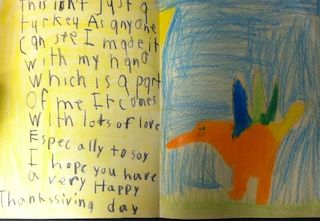 this isn't just a
turkey As anyone
can see I made it
with my hand
which is a part
Of me It comes
with lots of love
Especally to say
I hope you have
a very Happy
Thanksgiving day